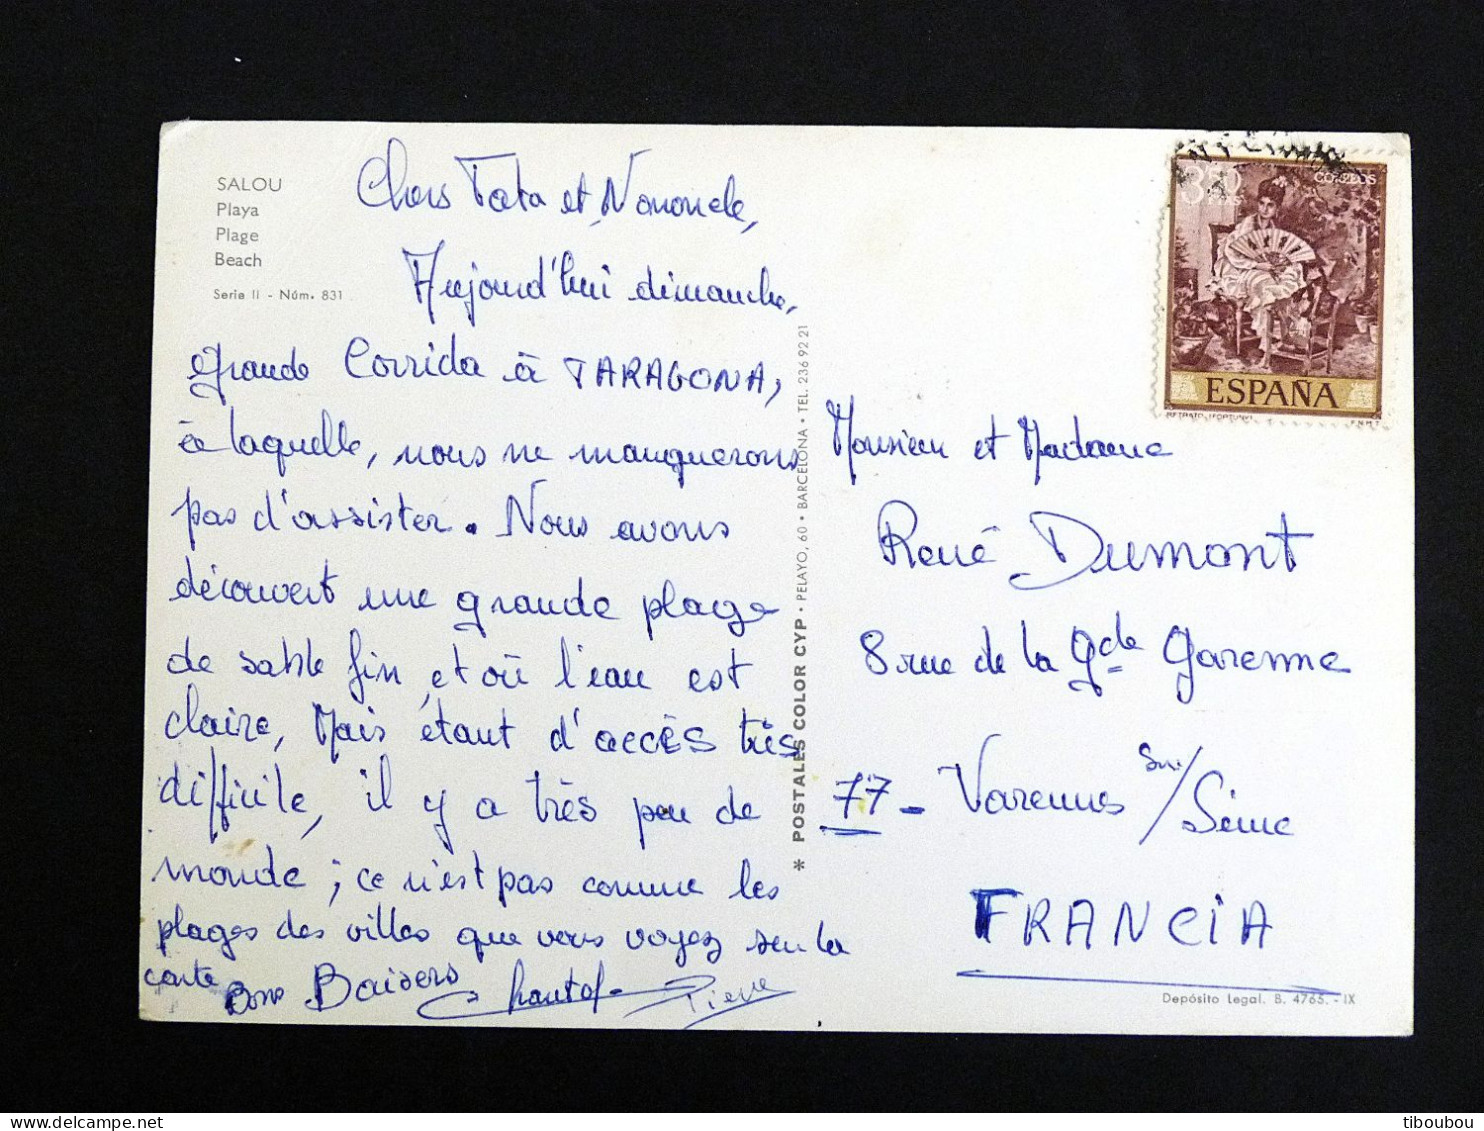 SALOU
Playa
Plage
Beach
Serie II - Núm. 831
Chers Tata et Nononcle,
Aujourd'hui dimanche,
grande Corrida à TARAGONA,
à laquelle, nous ne manquerons
pas d'assister. Nous avons
découvert une grande plage
de sable fin et où l'eau est
claire, Mais étant d'accès très
difficile, il y a très peu de
monde ; ce n'est pas comme les
plages des villes que vous voyez sur la
carte
Bons Baisers Chantal Pierre
* POSTALES COLOR CYP • PELAYO, 60 • BARCELONA • TEL. 236 92 21
3'50 PTAS CORREOS
ESPAÑA
RETRATO (FORTUNY) F.N.M.T
Monsieur et Madame
René Dumont
8 rue de la Gde Garenne
77 - Varennes sur/Seine
FRANCIA
Depósito Legal. B. 4765. - IX
tiboubou
© www.delcampe.net